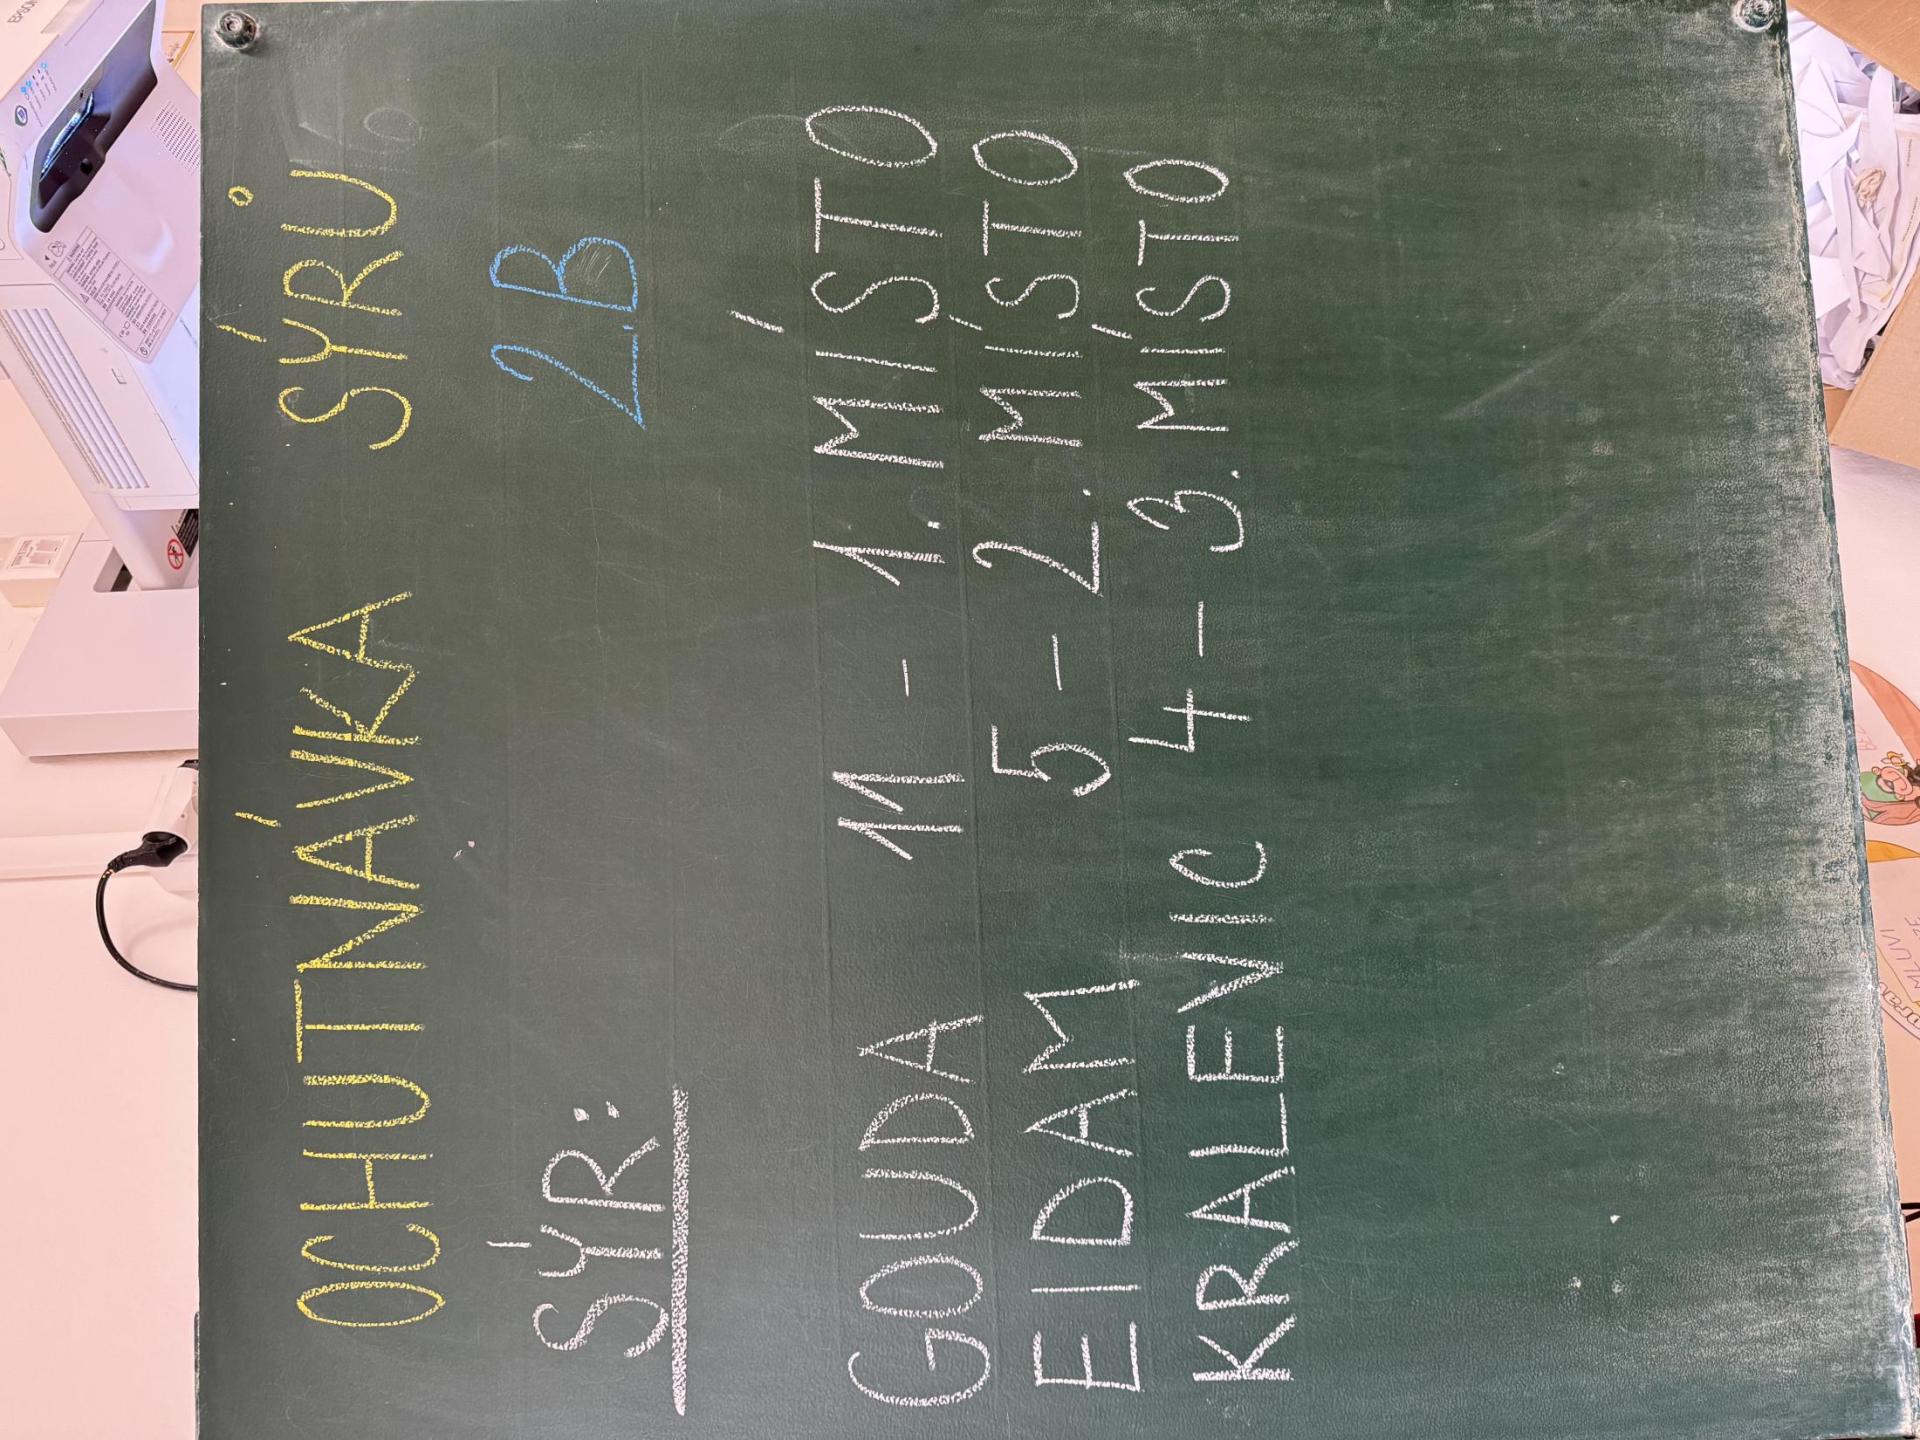 OCHUTNÁVKA SÝRŮ
2.B
SÝR:
GOUDA 11 - 1. MÍSTO
EIDAM 5 - 2. MÍSTO
KRALEVIC 4 - 3. MÍSTO